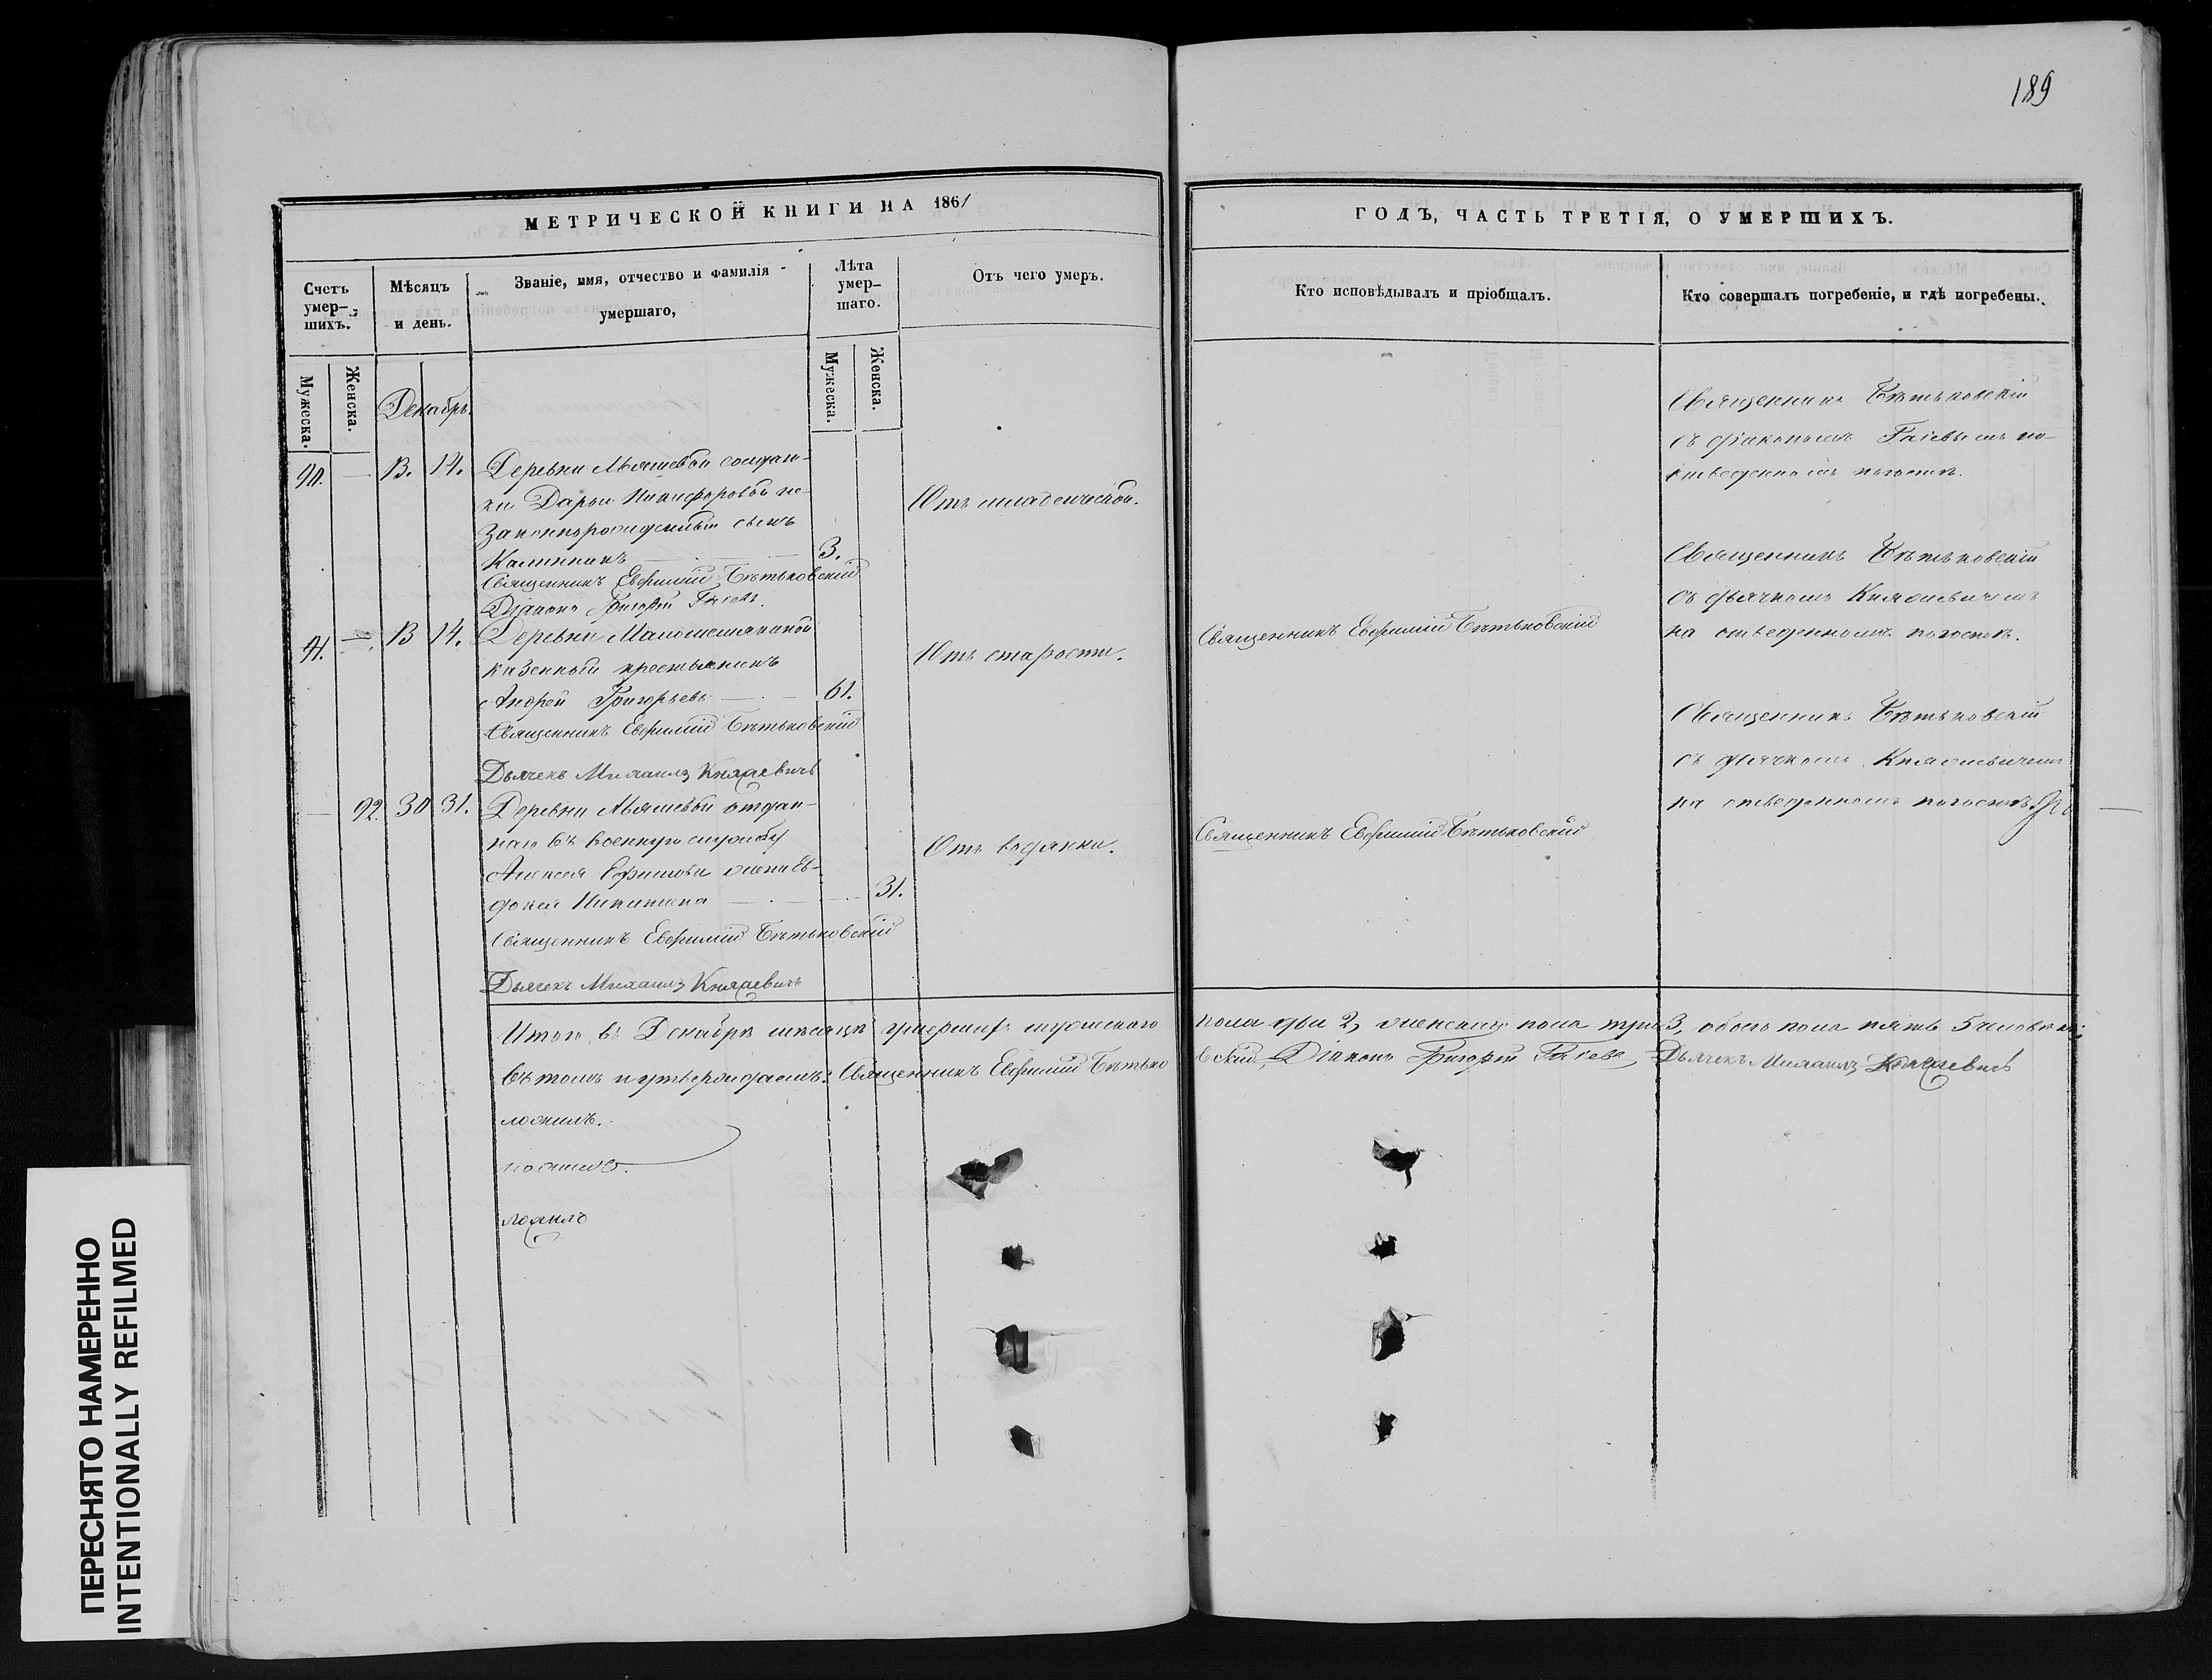 189
МЕТРИЧЕСКОЙ КНИГИ НА 1861
ГОДЪ, ЧАСТЬ ТРЕТІЯ, О УМЕРШИХЪ.
Счетъ умер-шихъ.
Мѣсяцъ и день.
Званіе, имя, отчество и фамилія умершаго,
Лѣта умер-шаго.
Отъ чего умеръ.
Кто исповѣдывалъ и пріобщалъ.
Кто совершалъ погребеніе, и гдѣ погребены.
Мужеска.
Женска.
Мужеска.
Женска.
Декабрь.
90. — 13. 14.
Деревни солдат-
ки Дарьи Никифоровой не-
законнорожденный сынъ
Каллиникъ — 3.
Священникъ Евфимій Бѣтьковскій
Діаконъ Григорій Гаіевъ.
Отъ младенческой.
Священникъ Бѣтьковскій
съ діакономъ Гаіевымъ на
отведенномъ погостѣ.
— 13 14.
Деревни
казенный крестьянинъ
Андрей Григорьевъ — 61.
Священникъ Евфимій Бѣтьковскій
Дьячекъ Михаилъ Княжевичъ
Отъ старости.
Священникъ Евфимій Бѣтьковскій
Священникъ Бѣтьковскій
съ дьячкомъ Княжевичемъ
на отведенномъ погостѣ.
— 92. 30 31.
Деревни отдан-
наго въ военную службу
Алексея Ефимова жена Ев-
докея Никитина — 31.
Священникъ Евфимій Бѣтьковскій
Дьячекъ Михаилъ Княжевичъ
Отъ водянки.
Священникъ Евфимій Бѣтьковскій
Священникъ Бѣтьковскій
съ дьячкомъ Княжевичемъ
на отведенномъ погостѣ.
Итого въ Декабрѣ мѣсяцѣ умершихъ мужескаго пола два 2, женскаго пола три 3, обоего пола пять 5 человѣкъ;
въ томъ и утверждаемъ: Священникъ Евфимій Бѣтьковскій, Діаконъ Григорій Гаіевъ Дьячекъ Михаилъ Княжевичъ
ложилъ.
ложилъ.
ложилъ
ПЕРЕСНЯТО НАМЕРЕННО
INTENTIONALLY REFILMED